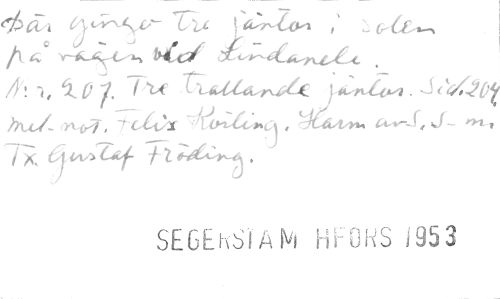 Där gingo tre jäntor i solen
på vägen vid Lindanele.
N:r. 207. Tre trallande jäntor. Sid. 204
mel-not. Felix Körling. Harm av S. S-m
Tx. Gustaf Fröding.
SEGERSTAM HFORS 1953